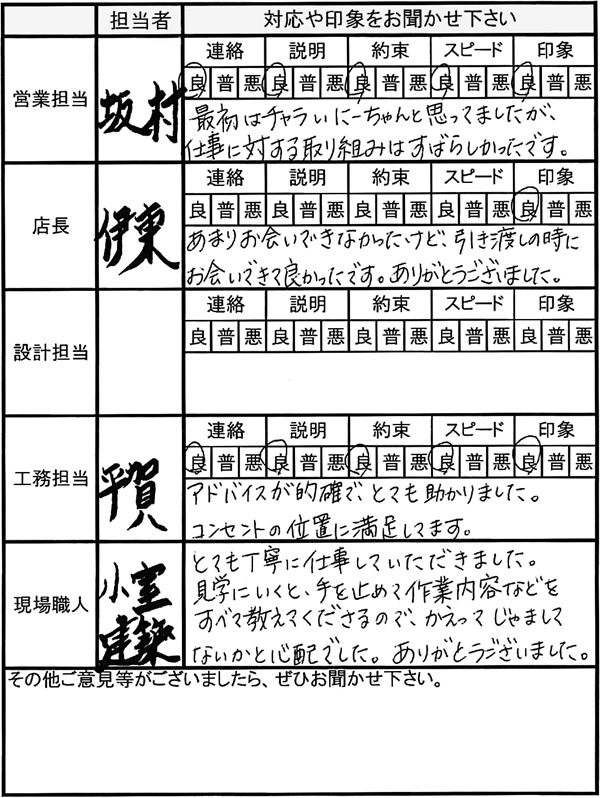 担当者 対応や印象をお聞かせ下さい
営業担当 坂村
連絡 説明 約束 スピード 印象
良 普 悪 良 普 悪 良 普 悪 良 普 悪 良 普 悪
最初はチャラいにーちゃんと思ってましたが、
仕事に対する取り組みはすばらしかったです。
店長 伊東
連絡 説明 約束 スピード 印象
良 普 悪 良 普 悪 良 普 悪 良 普 悪 良 普 悪
あまりお会いできなかったけど、引き渡しの時に
お会いできて良かったです。ありがとうございました。
設計担当
連絡 説明 約束 スピード 印象
良 普 悪 良 普 悪 良 普 悪 良 普 悪 良 普 悪
工務担当 平賀
連絡 説明 約束 スピード 印象
良 普 悪 良 普 悪 良 普 悪 良 普 悪 良 普 悪
アドバイスが的確で、とても助かりました。
コンセントの位置に満足してます。
現場職人 小室建築
とても丁寧に仕事していただきました。
見学にいくと、手を止めて作業内容などを
すべて教えてくださるので、かえってじゃまして
ないかと心配でした。ありがとうございました。
その他ご意見等がございましたら、ぜひお聞かせ下さい。